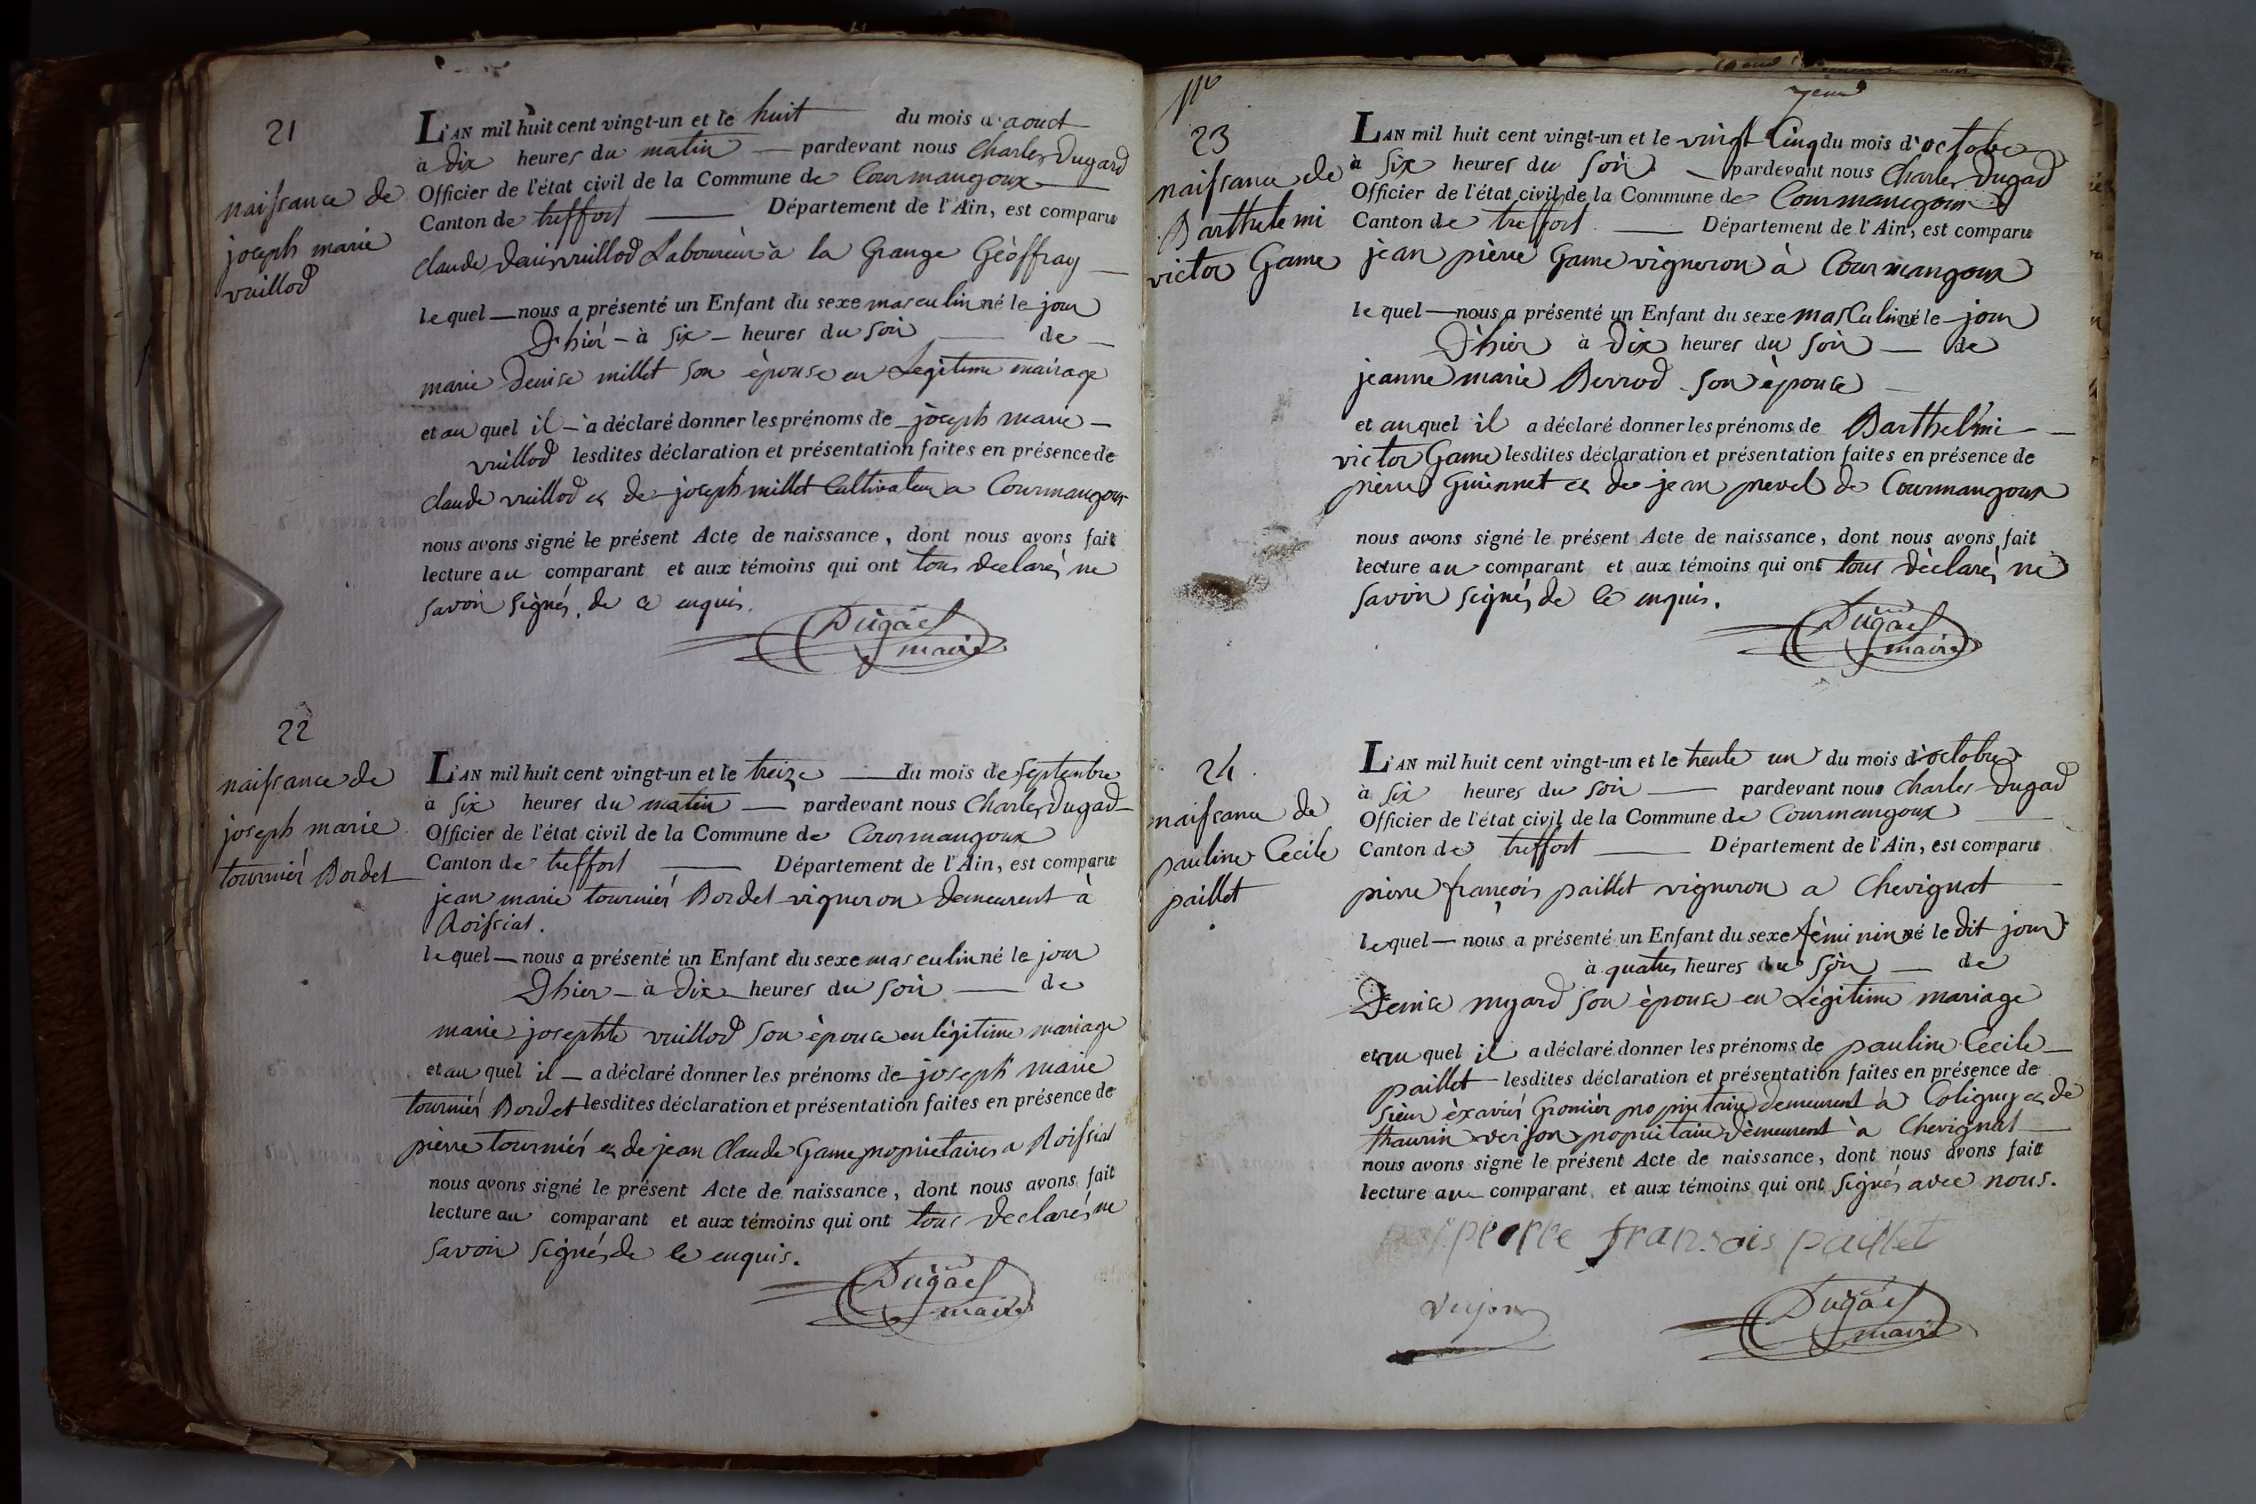 21
naissance de
joseph marie
vuillod
L'AN mil huit cent vingt-un et le huit du mois d'aouct
à dix heures du matin — pardevant nous Charles Dugad
Officier de l'état civil de la Commune de Courmangoux
Canton de treffort — Département de l'Ain, est comparu
claude denis vuillod Laboureur à la Grange Géoffray —
le quel — nous a présenté un Enfant du sexe masculin né le jour
D'hiér — à six — heures du soir — de —
marie Denise millet son épouse en Légitime mairage
et au quel il — a déclaré donner les prénoms de joseph marie —
vuillod lesdites déclaration et présentation faites en présence de
claude vuillod et de joseph millet Cultivateur a Courmangoux
nous avons signé le présent Acte de naissance, dont nous avons fait
lecture au comparant et aux témoins qui ont tous declarés ne
savoir signés, de ce enquis.
Dugad
maire
22
naissance de
joseph marie
tourniér Bordet
L'AN mil huit cent vingt-un et le treize — du mois de septembre
à six heures du matin — pardevant nous Charles Dugad
Officier de l'état civil de la Commune de Courmangoux
Canton de treffort — Département de l'Ain, est comparu
jean marie tourniér Bordet vigneron demeurent à
Roissiat.
le quel — nous a présenté un Enfant du sexe masculin né le jour
D'hier — à dix heures du soir — de
marie josephte vuillod son épouse en légitime mariage
et au quel il — a déclaré donner les prénoms de joseph marie
tourniér Bordet lesdites déclaration et présentation faites en présence de
pierre tourniér et de jean Claude Game propriétaires a Roissiat
nous avons signé le présent Acte de naissance, dont nous avons fait
lecture au comparant et aux témoins qui ont tous declarés ne
savoir signés de ce enquis.
Dugad
maire
23
naissance de
Barthelemi
victor Game
L'AN mil huit cent vingt-un et le vingt Cinq du mois d'octobre
à six heures du soir — pardevant nous Charles Dugad
Officier de l'état civil de la Commune de Courmangoux
Canton de treffort — Département de l'Ain, est comparu
jean piérre Game vigneron à Courmangoux
le quel — nous a présenté un Enfant du sexe masculin né le jour
D'hier à Dix heures du soir — de
jeanne marie Berrod son épouse —
et au quel il a déclaré donner les prénoms de Barthel'mi —
victor Game lesdites déclaration et présentation faites en présence de
piérre Guionnet et de jean prevel de Courmangoux
nous avons signé le présent Acte de naissance, dont nous avons fait
lecture au comparant et aux témoins qui ont tous déclarés ne
savoir signés de ce enquis.
Dugad
maire
24
naissance de
pauline Cecile
paillet
L'AN mil huit cent vingt-un et le trente un du mois d'octobre
à six heures du soir — pardevant nous Charles Dugad
Officier de l'état civil de la Commune de Courmangoux
Canton de treffort — Département de l'Ain, est comparu
pierre françois paillet vigneron a Chevignat
le quel — nous a présenté un Enfant du sexe féminin né le dit jour
à quatres heures du soir — de
Denise son épouse en Légitime mariage
et au quel il a déclaré donner les prénoms de pauline Cecile —
paillet — lesdites déclaration et présentation faites en présence de
sieur éxaviér Gromiér propriétaire demeurent à Coligny et de
thaurin propriétaire démeurent à Chevignat
nous avons signé le présent Acte de naissance, dont nous avons fait
lecture au comparant et aux témoins qui ont signés avec nous.
pierre fransois paillet
Dugad
maire